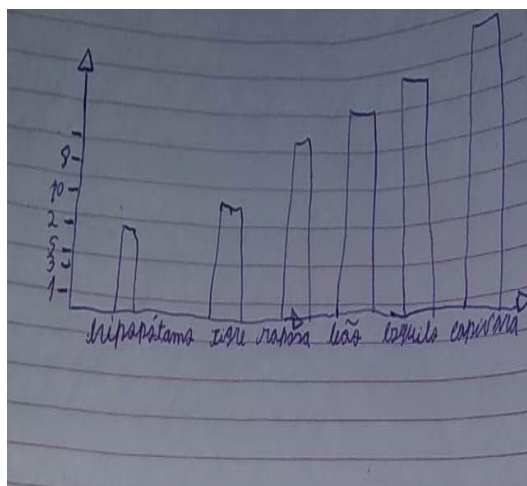 8
10
2
5
3
1
hipopótamo tigre raposa leão esquilo capivara